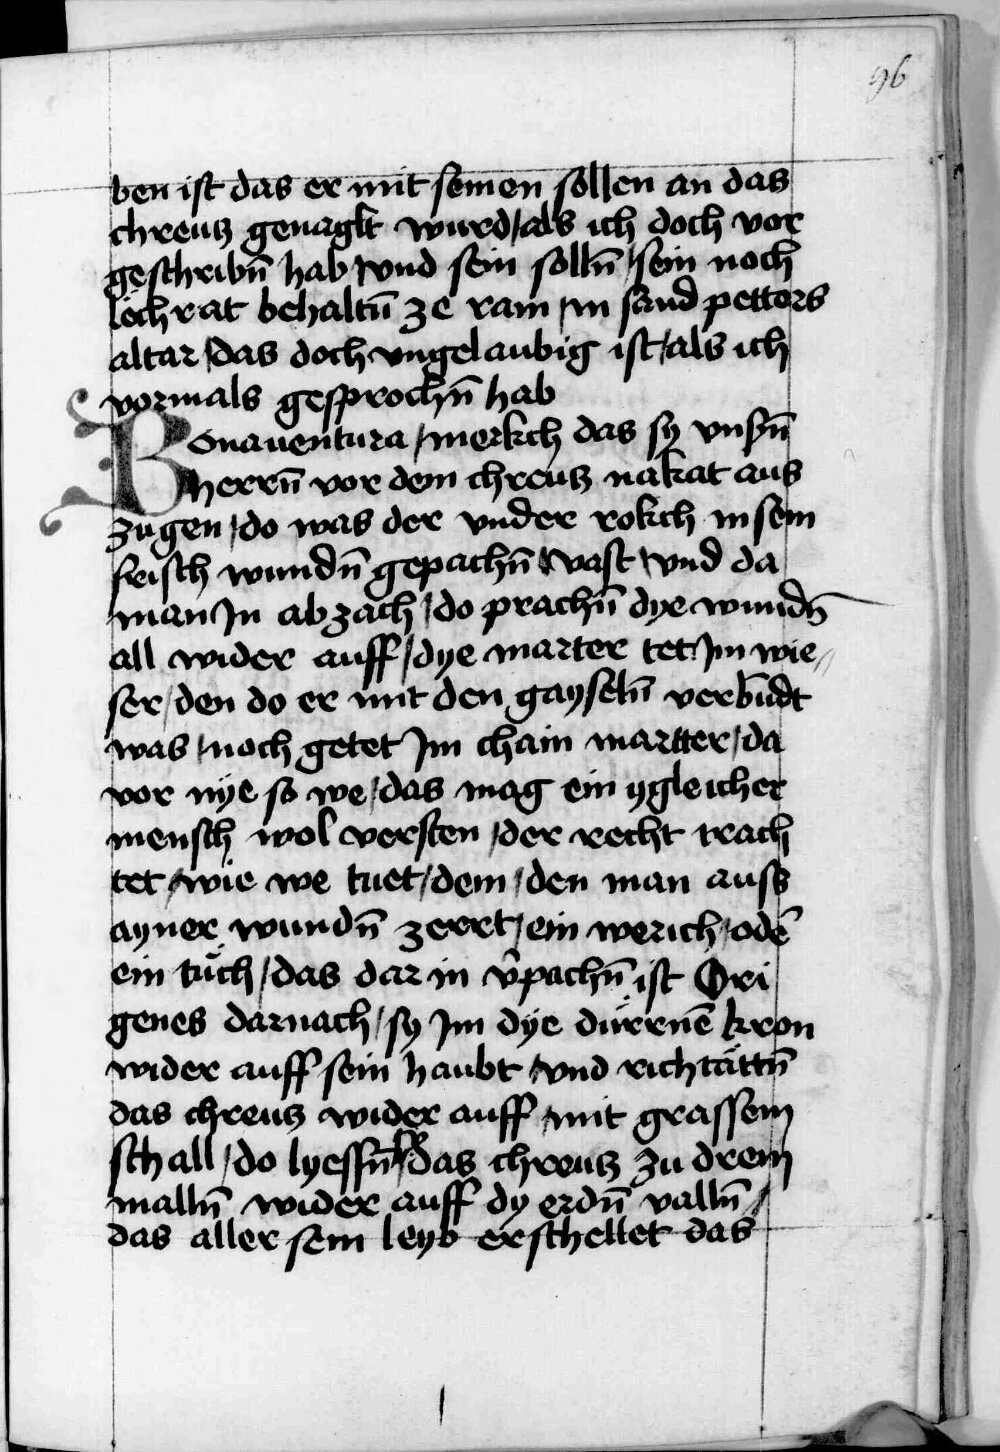 96
ben ist das er mit seinen sollen an das
chreutz genaglt wurd / als ich doch vor
geschribn̄ hab / vnd sein solln̄ / sein noch
lëchrat behaltn̄ ze ram / in sand petters
altar / das doch vngelaubig ist / als ich
vormals gesprochn̄ hab
Bonauentura / merkch das sy vnsn̄
herrn̄ vor dem chreutz nakat aus
zugen / do was der vnder rokch in sein
frisch wundn̄ gepachn̄ vast / vnd da
man Jn abzach / do prachn̄ dye wundn̄
all wider auff / dye marter tet Jm wie
ser / den do er mit den gayseln̄ verbūdt
was / noch getet Jm chain martter / da
vor nÿe so we / das mag ein ygleicher
mensch wol versten / der recht trach
tet / wie we tuet / dem / den man auss
ayner wundn̄ zerrt / ein werich / odē
ein tuͤch / das dar in v̄pachn̄ ist Ori
genes darnach / sy Jm dÿe duͤrrnē kron
wider auff sein haubt / vnd richtättn̄
das chreutz wider auff / mit grassem
schall / do lyessn̄ sy das chreutz zu drein
malln̄ wider auff dy erdn̄ valln̄ /
das aller sein leyb erschellet das